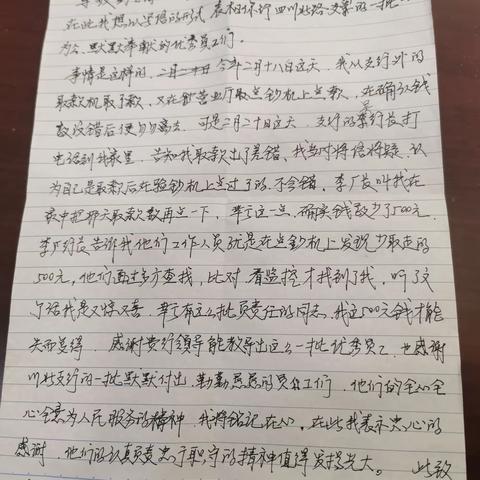 在此我想以送信的形式表扬你行四川北路支票的一批
为公、默默奉献的优秀员工们。
事情是这样的，二月二十日今年二月十八日这天，我从支行外的
取款机取了款，又在营业厅取点钞机上点款，在确认钱
数没错后便匆匆离去。可是二月二十日这天，支行的李行长打
电话到我家里，告知我取款出了差错，我当时将信将疑，认
为自己是取款后在验钞机上点过了的不会错，李厂长叫我在
家中把那天取款数再点一下，等这一点，确实钱数少了500元，
李行长告诉我他们工作人员就是在点钞机上发现少取走的
500元，他们通过多方查找，比对，看监控才找到了我，听了这
个话我是又惊又喜。幸有这么批负责任的同志，我这500元钱才能
失而复得，感谢贵行领导能教导出这么一批优秀员工，也感谢
川北支行的一批默默付出，勤勤恳恳的员工们，他们的全心全
心全意为人民服务的精神，我将铭记在心，在此我表示衷心的
感谢，他们的认真负责忠于职守的精神值得发扬光大。 此致